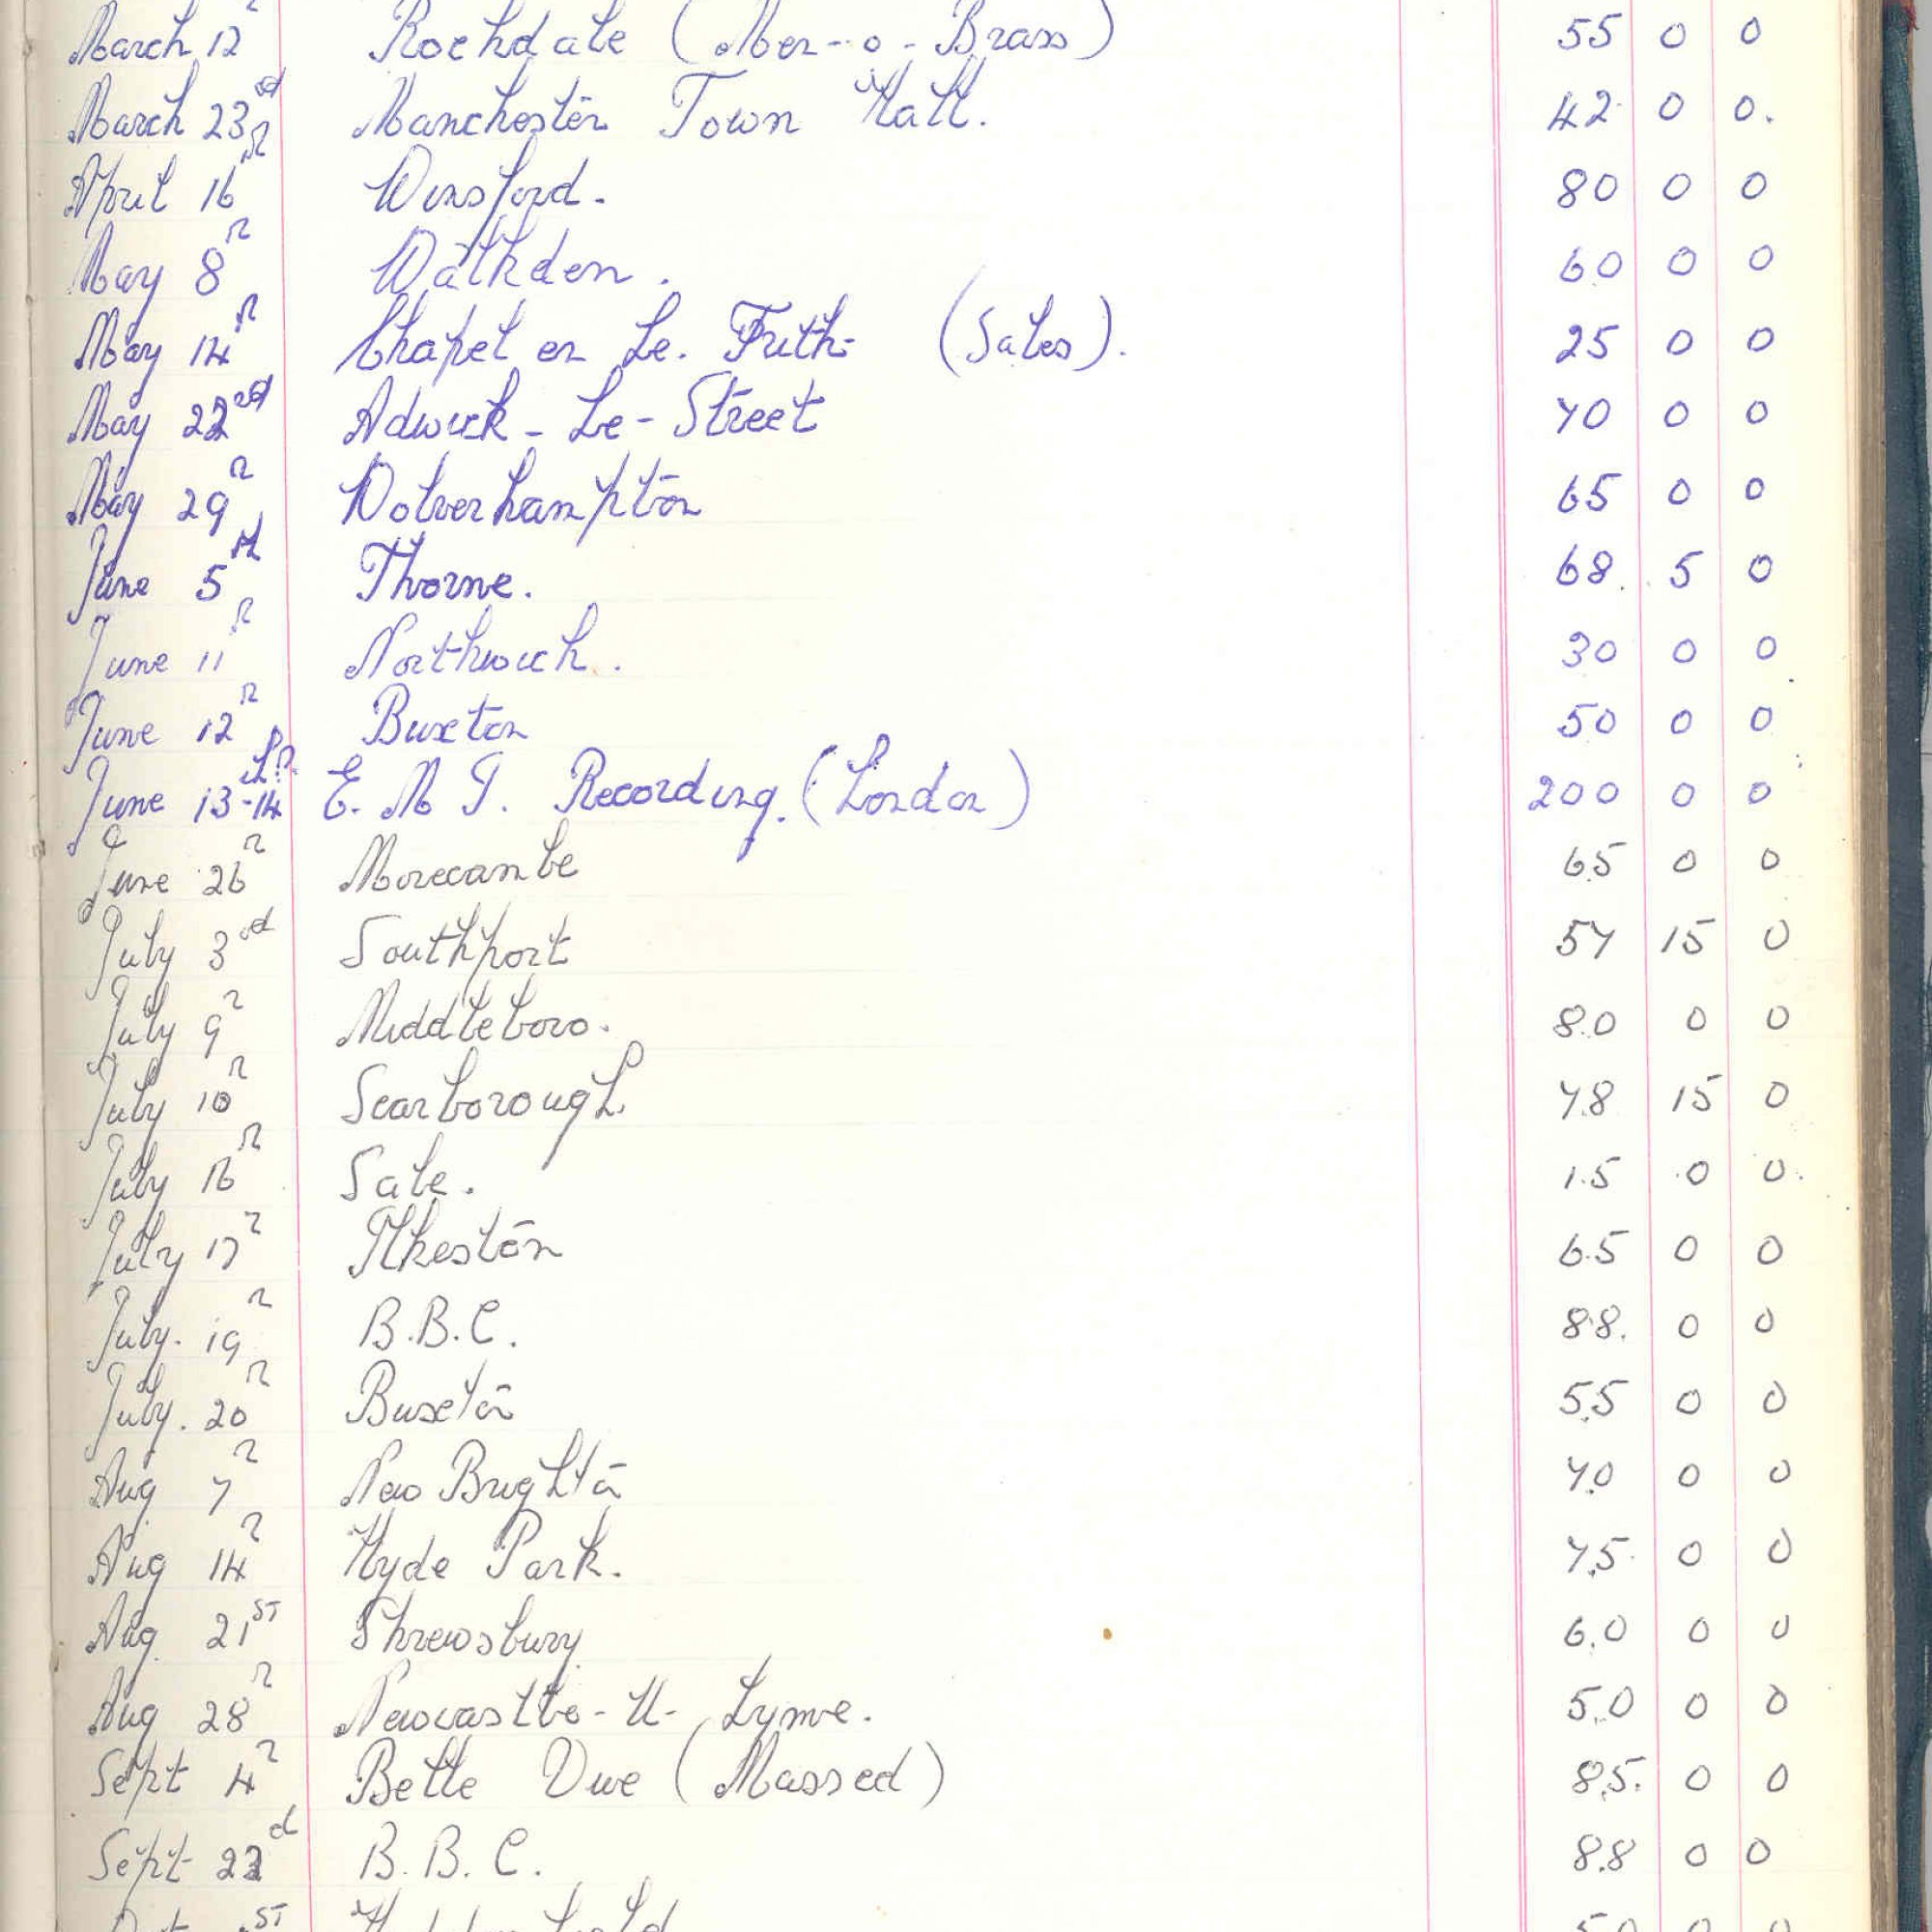 March 12th Rochdale (Men-o-Brass) 55 0 0
March 23rd Manchester Town Hall. 42 0 0.
April 16th Winsford. 80 0 0
May 8th Walkden. 60 0 0
May 14th Chapel en Le. Frith (Sales). 25 0 0
May 22nd Adwick-Le-Street 70 0 0
May 29th Wolverhampton 65 0 0
June 5th Thorne. 68. 5 0
June 11th Northwich. 30 0 0
June 12th Buxton 50 0 0
June 13-14th E. M I. Recording. (London) 200 0 0
June 26th Morecambe 65 0 0
July 3rd Southport 57 15 0
July 9th Middleboro. 80 0 0
July 10th Scarborough. 78 15 0
July 16th Sale. 15 0 0.
July 17th Ilkeston 65 0 0
July. 19th B.B.C. 88. 0 0
July. 20th Buxton 55 0 0
Aug 7th New Brighton 70 0 0
Aug 14th Hyde Park. 75 0 0
Aug. 21st Shrewsbury 60 0 0
Aug 28th Newcastle-U-Lyme. 50 0 0
Sept 4th Belle Vue (Massed) 85. 0 0
Sept 22d B. B. C. 88 0 0